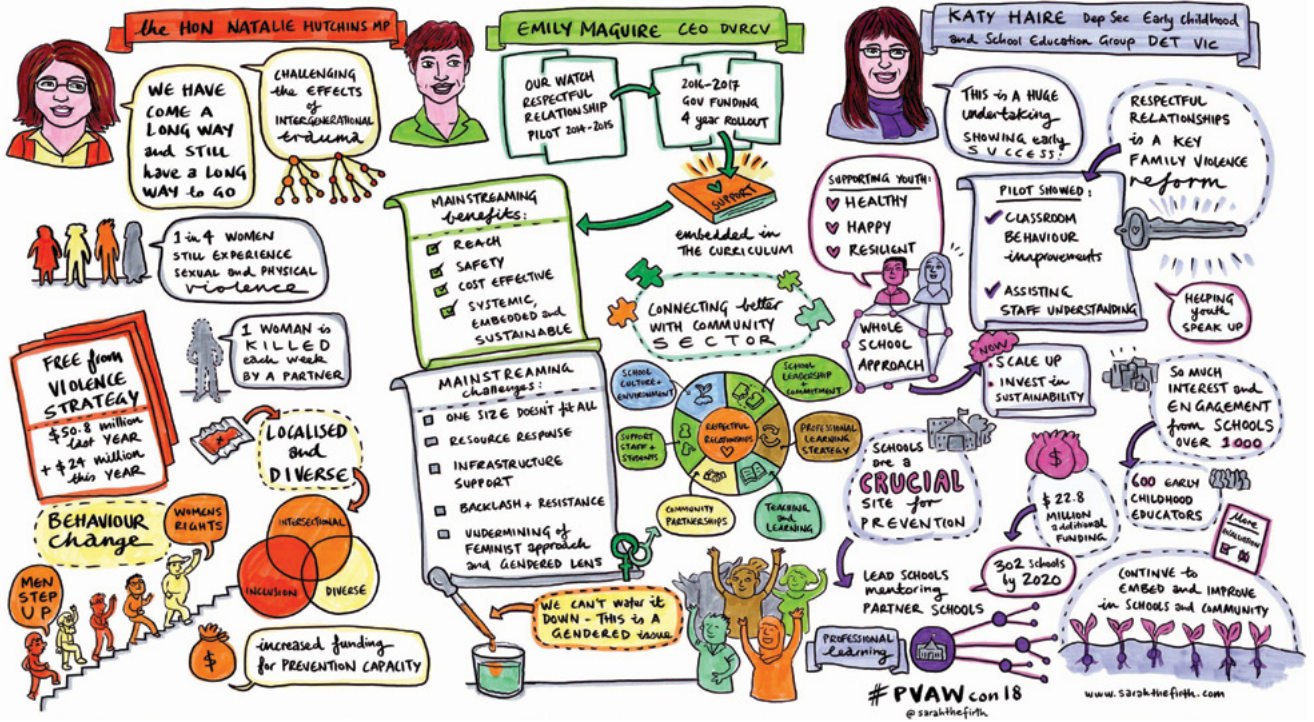 the HON NATALIE HUTCHINS MP
WE HAVE
COME A
LONG WAY
and STILL
have a LONG
WAY to GO
CHALLENGING
the EFFECTS
of
INTERGENERATIONAL
trauma
1 in 4 WOMEN
STILL EXPERIENCE
SEXUAL and PHYSICAL
violence
1 WOMAN is
KILLED
each week
BY A PARTNER
FREE from
VIOLENCE
STRATEGY
$50.8 million
last YEAR
+ $24 million
this YEAR
LOCALISED
and
DIVERSE
BEHAVIOUR
change
WOMENS
RIGHTS
MEN
STEP
UP
INTERSECTIONAL
INCLUSION
DIVERSE
$
increased funding
for PREVENTION CAPACITY
EMILY MAGUIRE CEO DVRCV
OUR WATCH
RESPECTFUL
RELATIONSHIP
PILOT 2014-2015
2016-2017
GOV FUNDING
4 year ROLLOUT
SUPPORT
embedded in
THE CURRICULUM
MAINSTREAMING
benefits:
REACH
SAFETY
COST EFFECTIVE
SYSTEMIC,
EMBEDDED and
SUSTAINABLE
CONNECTING better
WITH COMMUNITY
SECTOR
MAINSTREAMING
challenges:
ONE SIZE DOESN'T fit ALL
RESOURCE RESPONSE
INFRASTRUCTURE
SUPPORT
BACKLASH + RESISTANCE
UNDERMINING of
FEMINIST approach
and GENDERED LENS
SCHOOL
CULTURE +
ENVIRONMENT
SCHOOL
LEADERSHIP
+
COMMITMENT
SUPPORT
STAFF +
STUDENTS
RESPECTFUL
RELATIONSHIPS
PROFESSIONAL
LEARNING
STRATEGY
COMMUNITY
PARTNERSHIPS
TEACHING
and
LEARNING
WE CAN'T water it
DOWN - THIS is A
GENDERED issue
KATY HAIRE Dep Sec Early childhood
and School Education Group DET VIC
THIS is A HUGE
undertaking
SHOWING early
SUCCESS!
RESPECTFUL
RELATIONSHIPS
is A KEY
FAMILY VIOLENCE
reform
SUPPORTING YOUTH:
HEALTHY
HAPPY
RESILIENT
PILOT SHOWED:
CLASSROOM
BEHAVIOUR
improvements
ASSISTING
STAFF UNDERSTANDING
HELPING
youth
SPEAK UP
WHOLE
SCHOOL
APPROACH
NOW
SCALE UP
INVEST in
SUSTAINABILITY
SO MUCH
INTEREST and
ENGAGEMENT
from SCHOOLS
OVER 1000
SCHOOLS
are a
CRUCIAL
SITE for
PREVENTION
$
$22.8
MILLION
additional
FUNDING
600 EARLY
CHILDHOOD
EDUCATORS
More
EVALUATION
302 Schools
by 2020
LEAD SCHOOLS
mentoring
PARTNER SCHOOLS
PROFESSIONAL
learning
CONTINUE to
EMBED and IMPROVE
in SCHOOLS and COMMUNITY
#PVAWcon18
@sarahthefirth
www.sarahthefirth.com